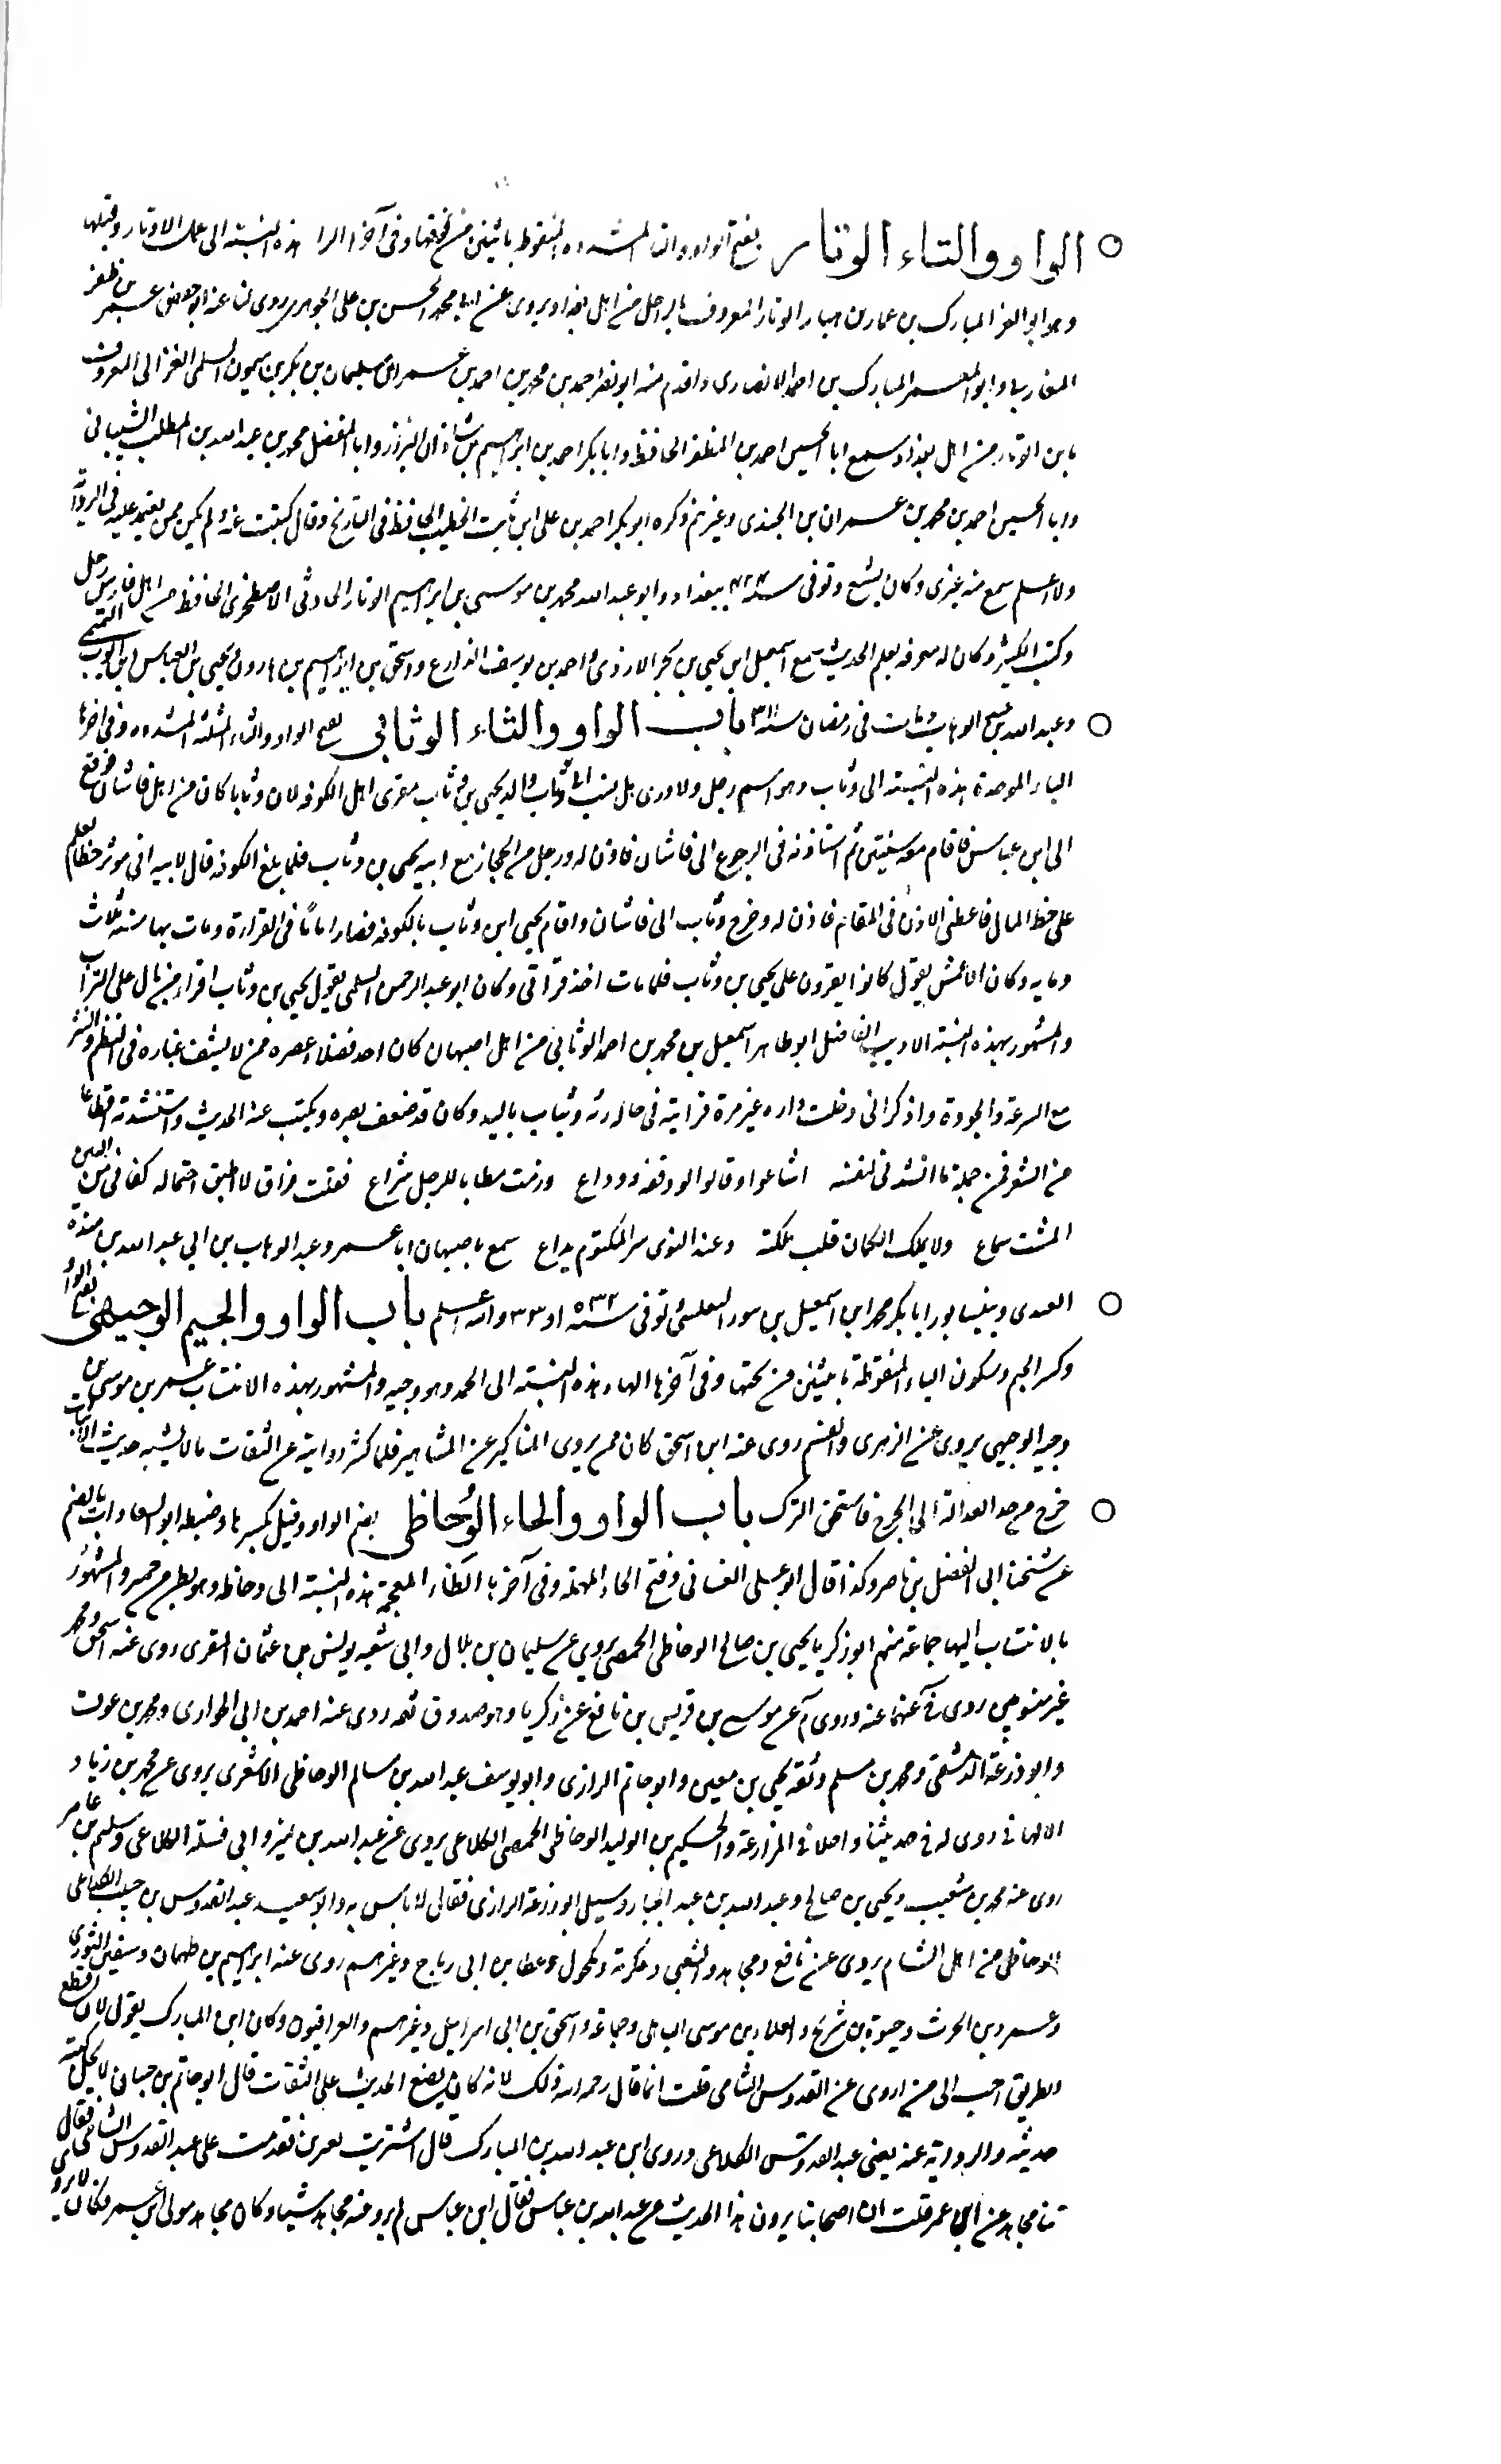 الواو والتاء الوتار بفتح الواو والتاء المشدده المنقوطه باثنين من فوقها وفى آخرا الرا هذه النسبة الى عمل الاوتار وفتلها
وهو ابو العز المبارك بن عمار بن الوتار المعروف من اهل بغداد يروى عن ابا محمد الحسن بن على الجوهرى روى لنا عنه ابو حفص عمر بن ظفر
المغازلى وابو المعمر المبارك بن احمد الانصارى واقدم منه ابو نصر احمد بن محمد بن احمد بن عمر ابن سليمان بن بكر بن ميمون السلمى الغزالى المعروف
بابن الوتار من اهل بغداد سمع ابا الحسين احمد بن المظفر الحافظ وابا بكر احمد بن ابراهيم بن شاذان البزاز وابا المفضل محمد بن عبد الله بن المطلب الشيبانى
وابا الحسين احمد بن محمد بن عمران بن الجندى وغيرهم ذكره ابو بكر احمد بن على ابن ثابت الخطيب الحافظ فى التاريخ وقال كتبت عنه ولم يكن ممن يعتمد عليه فى الرواية
ولا اعلم سمع منه غيرى وكان يتشيع وتوفى سنة ببغداد وابو عبد الله محمد بن موسى بن ابراهيم الوتار الحادثى الاصطخرى الحافظ من اهل فارس رحل
وكتب الكثير وكان له معرفه بعلم الحديث سمع اسمعيل ابن يحيى بن بحر الازدى واحمد بن يوسف الذارع واسحق بن ابراهيم بن هارون ويحيى بن العباس
وعبد الله بن عبد الوهاب ومات فى رمضان سنه ٣١١ باب الواو والثاء الوثابى بفتح الواو والثاء المثلثه المشدده وفى اخرها
الباء الموحدة هذه النسبة الى وثاب وهو اسم رجل ولا ادرى هل ينسب الى وثاب والد يحيى بن وثاب مقرى اهل الكوفه لان وثابا كان من اهل قاشان فوقع
الى ابن عباس فاقام معه سنتين ثم استاذنه فى الرجوع الى قاشان فاذن له ورحل من الحجاز مع ابنه يحيى بن وثاب فلما بلغ الكوفه قال لابيه انى موثر حظ العلم
على حظ المال فاعطنى الاذن فى المقام فاذن له وخرج وثاب الى قاشان واقام يحيى ابن وثاب بالكوفه فصار اماما فى القراءة ومات بها سنة ثلاث
ومايه وكان الاعمش يقول كانوا يقرون على يحيى بن وثاب فلما مات اخذ قرآتى وكان ابو عبد الرحمن السلمى يقول يحيى بن وثاب اقرا من بال على التراب
والمشهور بهذه النسبة الاديب الفاضل ابو طاهر اسمعيل بن محمد بن احمد الوثابى من اهل اصبهان كان احد فضلا عصره ممن لا يشق غباره فى النظم والنثر
مع السرعة والجودة واذكر انى دخلت داره غير مرة فرايته فى حاله رثه وثياب باليه وكان قد ضعف بصره وكتبت عنه الحديث واستنشدته قطاعا
من الشعر فمن جملة ما انشدنى لنفسه اشاعوا وقالوا وقفة ووداع وزمت مطايا للرحيل سراع فقلت فراق لا اطيق احتماله كفانى من البين
المشت سماع ولا يملك الكتمان قلب ملكته وعند النوى سر المكتوم يذاع سمع باصبهان ابا عمرو عبد الوهاب بن ابى عبد الله بن مندة
العبدى وبنيسابور ابا بكر محمد ابن اسمعيل بن توفى سنه ٥٣٢ او ٣٣ والله اعلم باب الواو والجيم الوجيهى بفتح الواو
وكسر الجيم وسكون الياء المنقوطة باثنين من تحتها وفى آخرها الهاء هذه النسبة الى الجد وهو وجيه والمشهور بهذه الانتساب عمر بن موسى بن
وجيه الوجيهى يروى عن الزهرى والقسم روى عنه ابن اسحق كان ممن يروى المناكير عن المشاهير فلما كثر روايته عن الثقات مالا يشبه حديث الاثبات
خرج من حد العدالة الى الجرح فاستحق الترك باب الواو والحاء الوُحاظى بضم الواو وقيل بكسرها وضبطه ابو السعادات بالضم
عن شيخنا ابى الفضل بن ناصر وكذا قال ابو على الغسانى وفتح الحاء المهملة وفى آخرها الظاء المعجمة هذه النسبة الى وحاظه وهو بطن من حمير والمشهور
بالانتساب اليها جماعة منهم ابو زكريا يحيى بن صالح الوحاظى الحمصى يروى عن سليمان بن بلال وابى شعبه يونس بن عثمان المقرى روى عنه اسحق ومحمد
غير منسوبين روى عنه وروى عن موسى بن قريس بن نافع عن زكريا وهو صدوق ثقه روى عنه احمد بن ابى الحوارى ومحمد بن عوف
وابو زرعة الدمشقى ومحمد بن مسلم وثقه يحيى بن معين وابو حاتم الرازى وابو يوسف عبد الله بن سالم الوحاظى الاشعرى يروى عن محمد بن زياد
الالهانى روى له خ حديثا واحدا فى المزارعة والحكيم بن الوليد الوحاظى الحمصى الكلاعى يروى عن عبد الله بن وابى الكلاعى وسليم بن عامر
روى عنه محمد بن شعيب ويحيى بن صالح وعبد الله بن عبد الجبار وسيل ابو زرعة الرازى فقال لا باس به وابو سعيد عبد القدوس بن حبيب الكلاعى
الوحاظى من اهل الشام يروى عن نافع ومجاهد والشعبى وعكرمة ومكحول وعطا بن ابى رباح وغيرهم روى عنه ابراهيم بن طهمان وسفين الثورى
وعمرو بن الحرث وحيوة بن شريح والعلاء بن موسى الباهلى وجماعة واسحق بن ابى اسرائيل وغيرهم والعراقيون وكان ابن المبارك يقول لان اقطع
الطريق احب الى من اروى عن القدوس الشامى قلت انما قال رحمه الله ذلك لانه كان يضع الحديث على الثقات قال ابو حاتم بن حبان لا يحل كتبه
حديثه والرواية عنه يعنى عبد القدوس الكلاعى وروى ابن عبد الله بن المبارك قال اشتريت بعيرين فقدمت على عبد القدوس الشامى فقال
ثنا مجاهد عن ابن عمر قلت ان اصحابنا يروون هذا الحديث عن عبد الله بن عباس فقال ابن عباس لم يرو عنه مجاهد شيا وكان مجاهد مولى ابن عمر فكان لا يروى